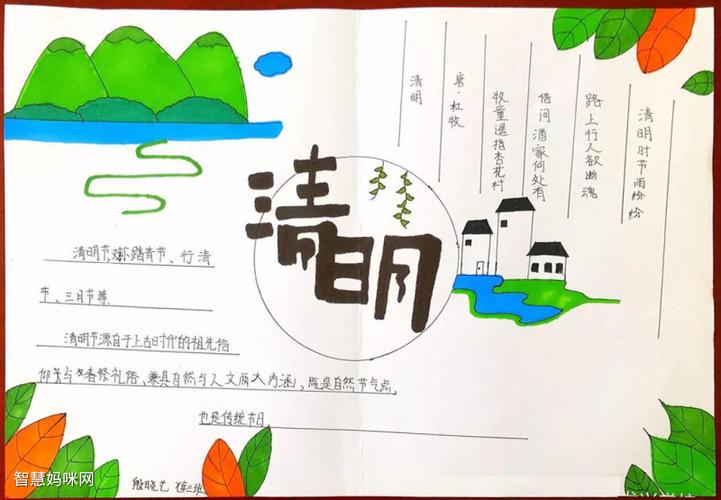 清明时节雨纷纷
路上行人欲断魂
借问酒家何处有
牧童遥指杏花村
唐·杜牧
清明
清明
清明节 踏青节、行清
节、三月节等
清明节源自于上古时代的祖先
仰 与春祭礼俗、兼具自然与人文两大内涵,既是自然节气点,
也是传统节日
殷晓艺 三班
智慧妈咪网